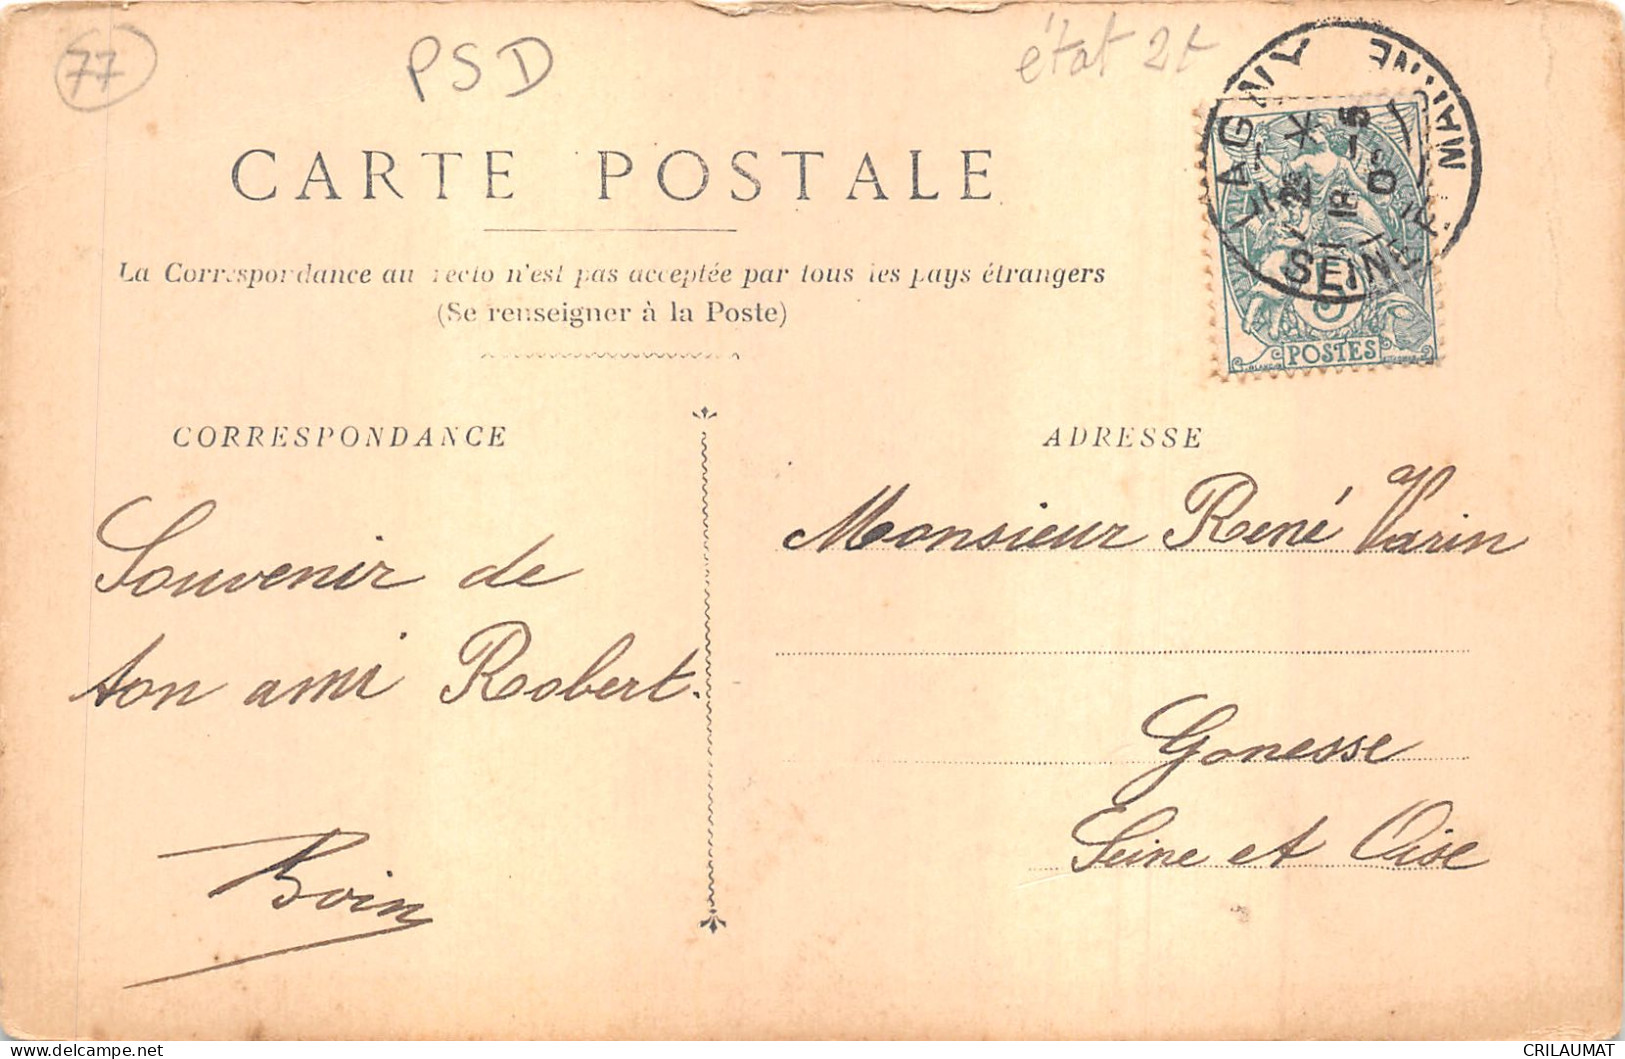 77
PSD
état 2t
CARTE POSTALE
La Correspondance au recto n'est pas acceptée par tous les pays étrangers
(Se renseigner à la Poste)
LAGNY
SEINE ET MARNE
POSTES
CORRESPONDANCE
ADRESSE
Souvenir de
ton ami Robert.
Boin
Monsieur René Varin
Gonesse
Seine et Oise
CRILAUMAT